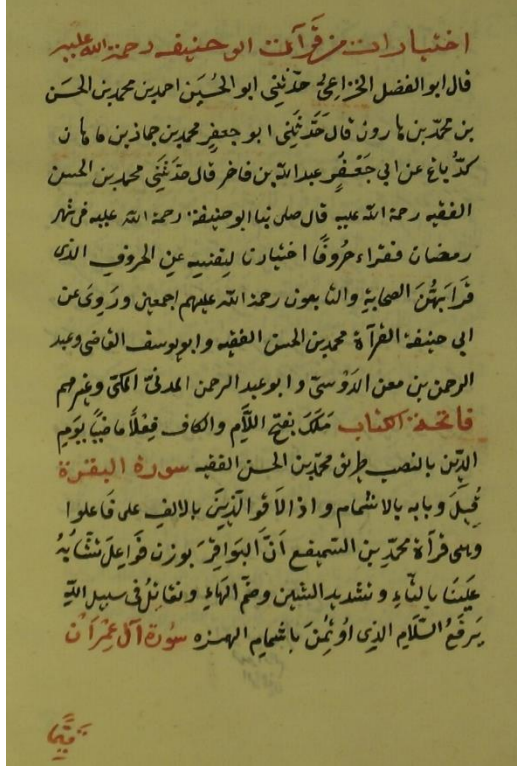 اختيارات من قرآءت ابو حنيفه رحمة الله عليه
قال ابو الفضل الخزاعى حدّثنى ابو الحُسَين احمد بن محمد بن الحسَن
بن محمّد بن هارون قال حَدَّثَنِى ابو جعفر محمد بن حماد بن ماهان
عن ابى جَعْفَر عبد الله بن فاخر قال حَدّثَنَى محمد بن الحسن
الفقيه رحمة الله عليه قال صلى بنا ابو حنيفة رحمة الله عليه فى شهر
رمضان فقراء حُروفًا اختيارنا لنفسه عن الحروف الذى
قرَا بهنّ الصحابة والتابعون رحمة الله عليهم اجمعين ورَوىَ عن
ابى حنيفة القرآة محمد بن الحسن الفقيه وابو يوسف القاضى وعبد
الرحمن بن معن الدَوْسىّ وابو عبد الرحمن المدنىّ المكىّ وغيرهم
فاتحة الكتاب مَلَكَ بفتح اللّام والكاف فِعْلًا ماضيًا يَومِ
الدّين بالنصب طريق محمّد بن الحسن الفقيه سورة البقرة
قُيِلَ وبابه بالاشمام واذا لاقوا الّذِينَ بالالف على فَاعلوا
وهى قرآة محمّد بن السّميفع انَّ البَواقِرَ بوزن فَواعِلَ تَشَّابَهُ
عَلَينَا بالتّاءِ وتشديد الشين وضمّ الهَاءِ وتقاتِلُ فى سبيل اللّهِ
يَرفَعُ السّلَام الذِى اوُتِمُنَ باشمامِ الهمزه سوُرة آل عِمْرَان